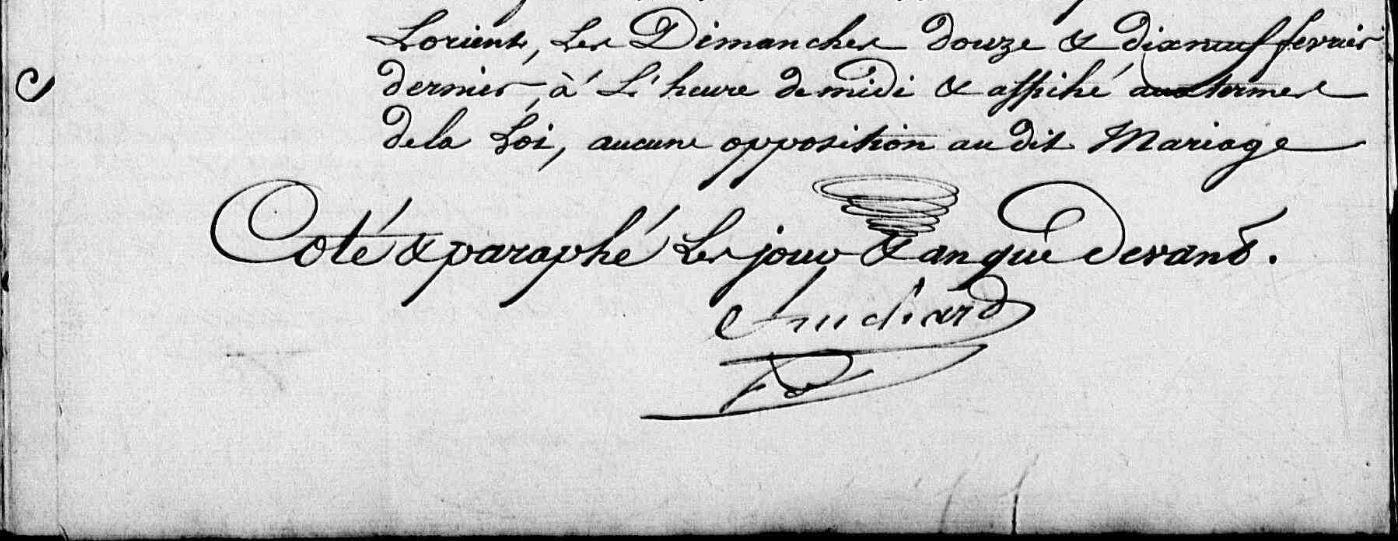 Lorient, Les Dimanches douze & dixneuf fevrier
dernier à L'heure de midi & affiché aux termes
de la Loi, aucune opposition au dit Mariage
Coté & paraphé Les jour & an que Devant.